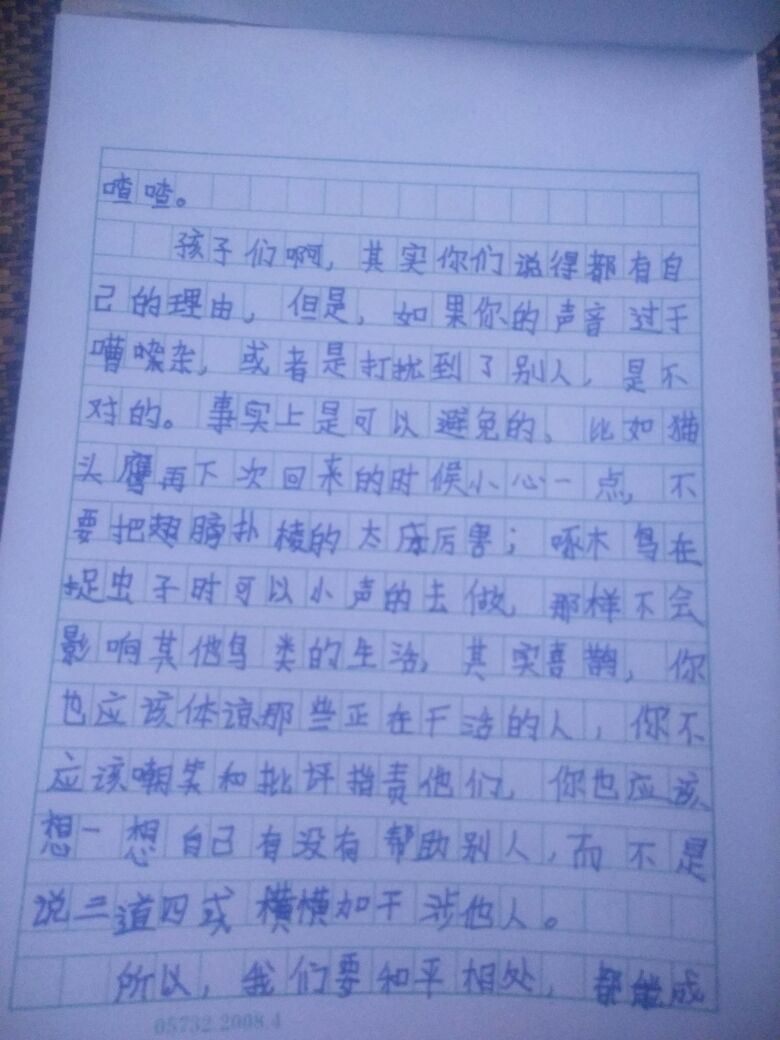 喳喳。
孩子们啊，其实你们说得都有自
己的理由，但是，如果你的声音过于
嘈嘈杂，或者是打扰到了别人，是不
对的。事实上是可以避免的，比如猫
头鹰再下次回来的时候小心一点，不
要把翅膀扑棱的太厉害；啄木鸟在
捉虫子时可以小声的去做，那样不会
影响其他鸟类的生活，其实喜鹊，你
也应该体谅那些正在干活的人，你不
应该嘲笑和批评指责他们，你也应该
想一想自己有没有帮助别人，而不是
说三道四或横横加干涉他人。
所以，我们要和平相处，都能成
05732.2008.4